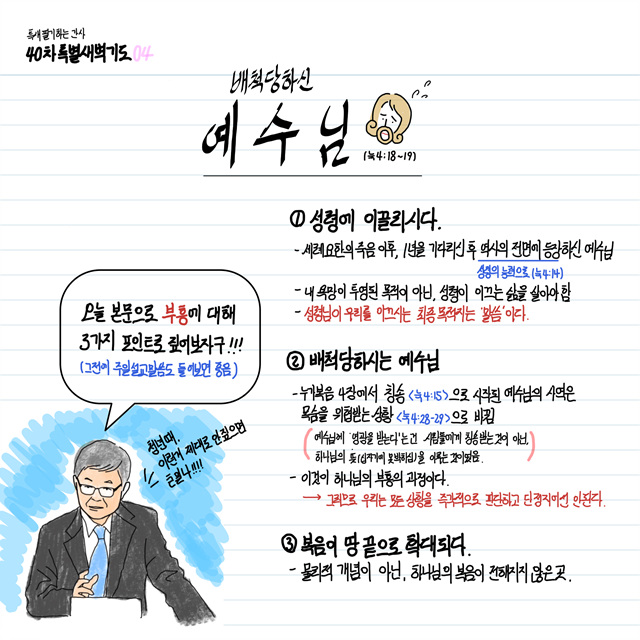 특새필기하는 간사
40차 특별새벽기도 04
배척당하신
예수님
(눅4:18~19)
① 성령에 이끌리시다.
- 세례요한의 죽음 이후, 1년을 기다리신 후 역사의 전면에 등장하신 예수님
성령의 능력으로 (눅4:14)
- 내 욕망이 투영된 목적이 아닌, 성령이 이끄는 삶을 살아야 함
- 성령님이 우리를 이끄시는 최종 목적지는 '말씀'이다.
오늘 본문으로 부통에 대해
3가지 포인트로 짚어보자구!!!
(그전에 주일설교말씀도 들어보면 좋음)
② 배척당하시는 예수님
- 누가복음 4장에서 칭송 <눅4:15>으로 시작된 예수님의 사역은
목숨을 위협받는 상황 <눅4:28-29>으로 바뀜
(예수님께 '영광을 받는다'는건 사람들에게 칭송받는것이 아닌,
하나님의 뜻(십자가에 못박히심)을 이루는 것이었음.)
- 이것이 하나님의 부통의 과정이다.
→ 그러므로 우리는 모든 상황을 즉각적으로 판단하고 단정지어선 안된다.
청년때,
이런거 제대로 안짚으면
큰일나!!!!
③ 복음이 땅 끝으로 확대되다.
- 물리적 개념이 아닌, 하나님의 복음이 전해지지 않은 곳.